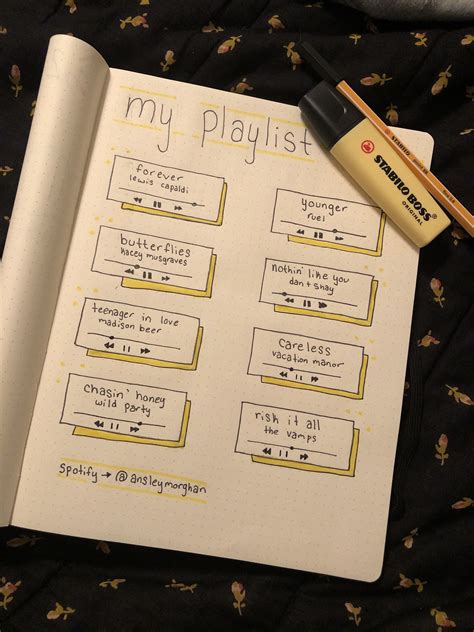 my playlist
forever
lewis capaldi
butterflies
kacey musgraves
teenager in love
madison beer
chasin' honey
wild party
younger
ruel
nothin' like you
dan + shay
careless
vacation manor
risk it all
the vamps
spotify → @ansleymorghan
STABILO BOSS
ORIGINAL
STABILO